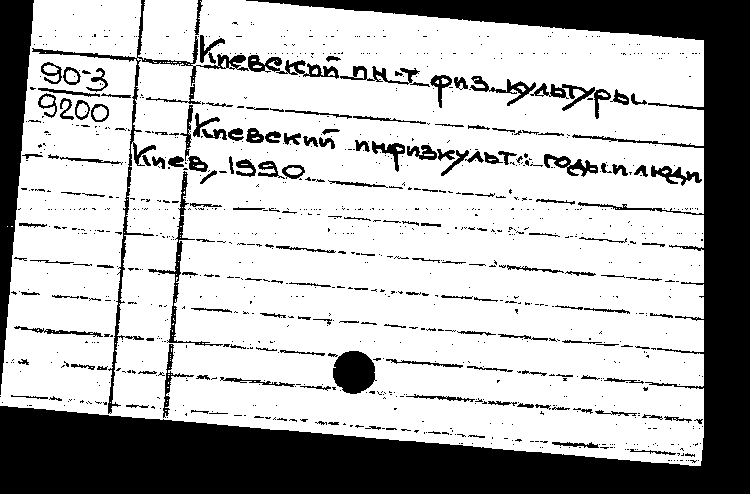 Киевский ин-т физ. культуры.
90-3
9200
Киевский инфизкульт: годы и люди
Киев, 1990